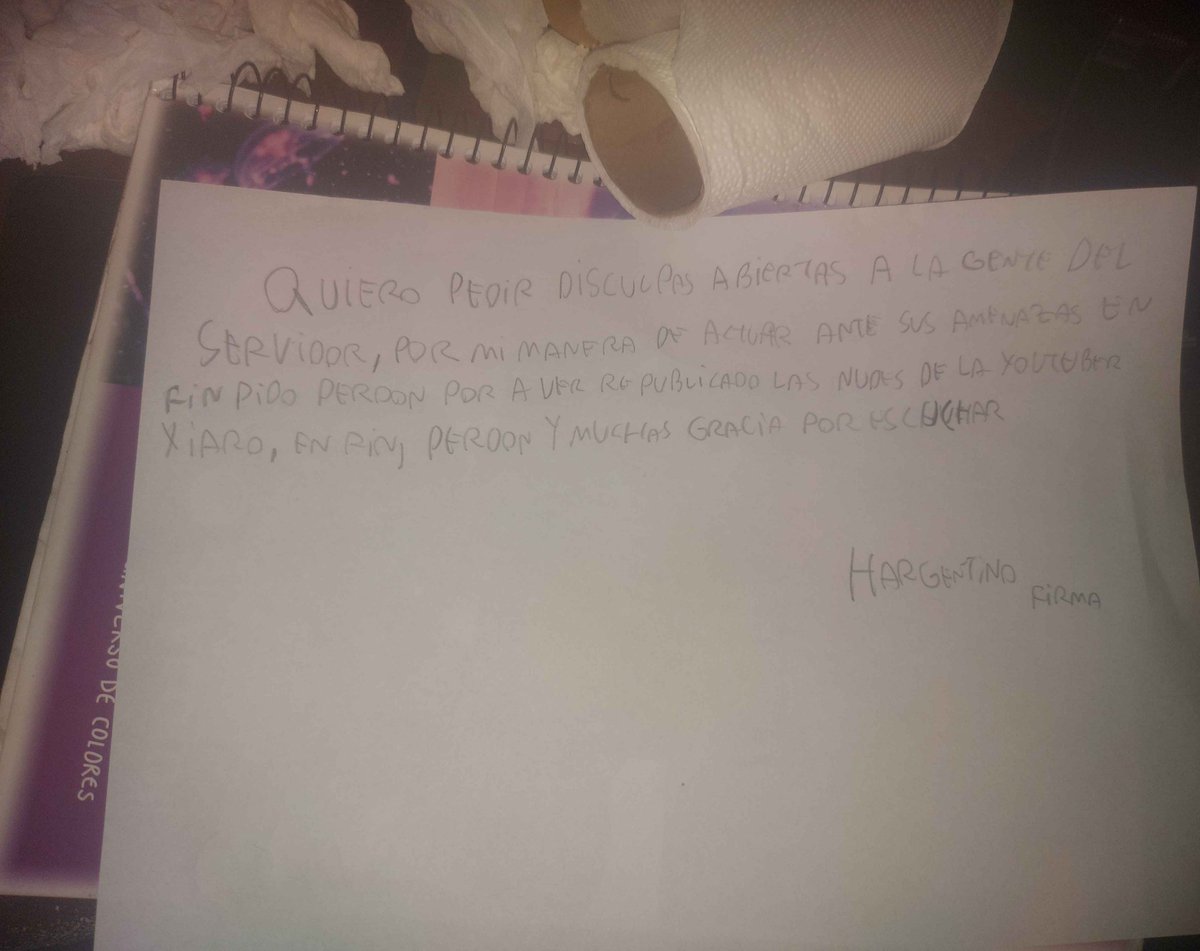 QUIERO PEDIR DISCULPAS ABIERTAS A LA GENTE DEL
SERVIDOR, POR MI MANERA DE ACTUAR ANTE SUS AMENAZAS EN
FIN PIDO PERDON POR A VER REPUBLICADO LAS NUDES DE LA YOUTUBER
XIARO, EN FIN, PERDON Y MUCHAS GRACIA POR ESCUCHAR
HARGENTINO
FIRMA
UNIVERSO DE COLORES